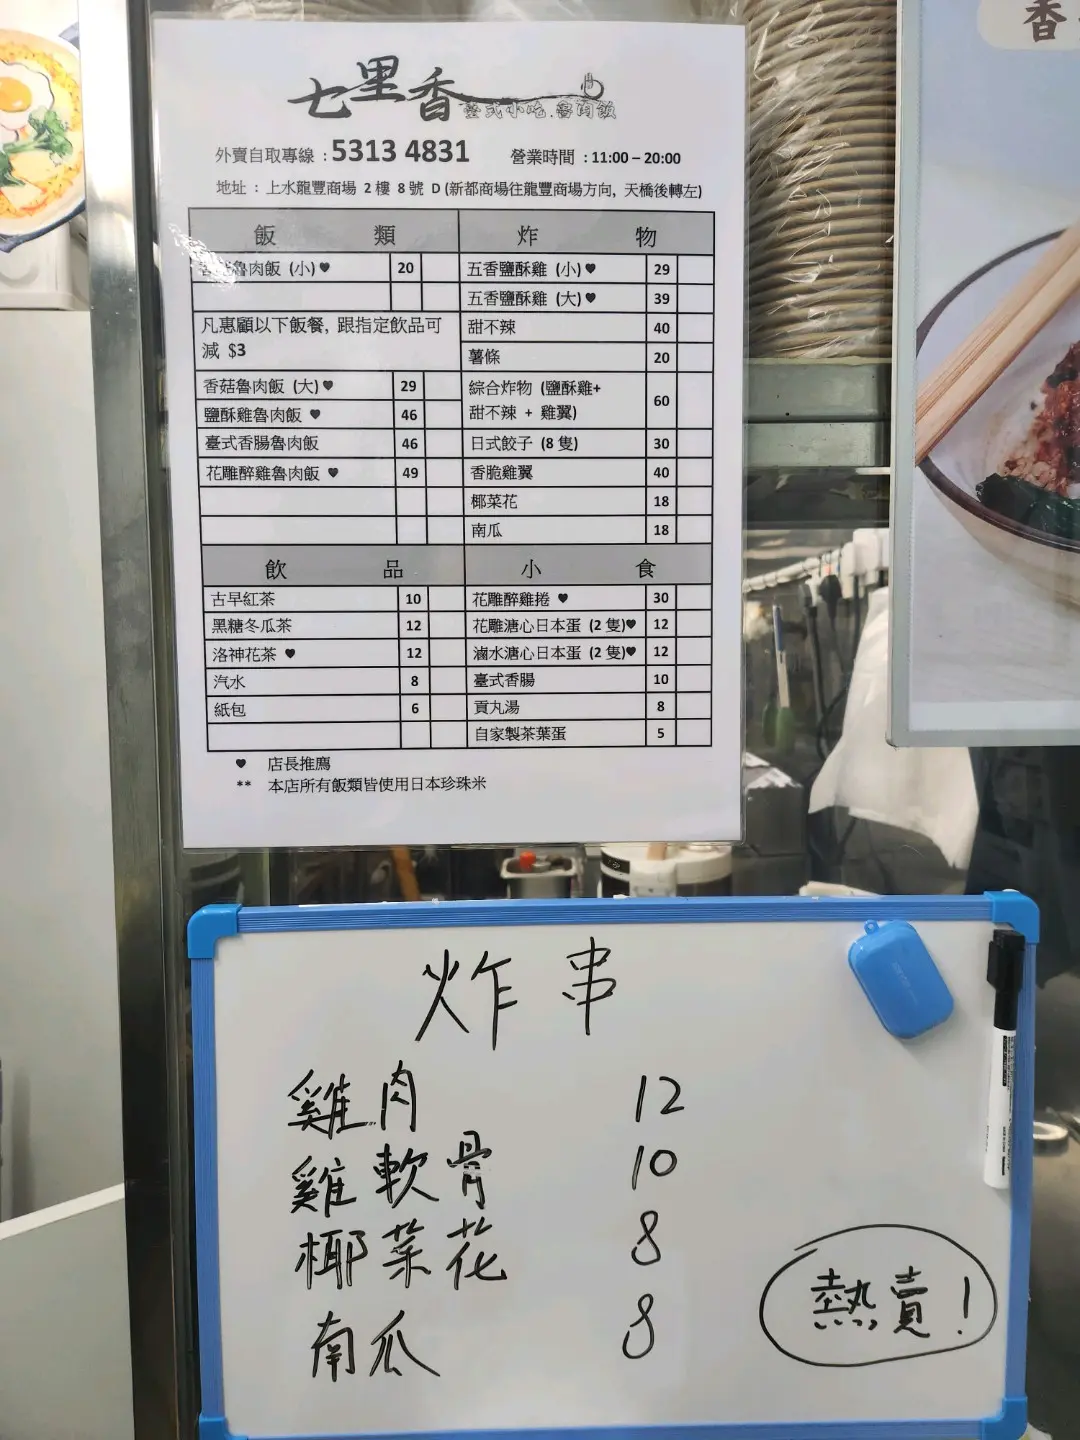 七里香
臺式小吃.魯肉飯
外賣自取專線 : 5313 4831 營業時間 : 11:00 – 20:00
地址 : 上水龍豐商場 2 樓 8 號 D (新都商場往龍豐商場方向, 天橋後轉左)
飯 類
魯肉飯 (小) ♥ 20
凡惠顧以下飯餐, 跟指定飲品可
減 $3
香菇魯肉飯 (大) ♥ 29
鹽酥雞魯肉飯 ♥ 46
臺式香腸魯肉飯 46
花雕醉雞魯肉飯 ♥ 49
炸 物
五香鹽酥雞 (小) ♥ 29
五香鹽酥雞 (大) ♥ 39
甜不辣 40
薯條 20
綜合炸物 (鹽酥雞+
甜不辣 + 雞翼) 60
日式餃子 (8 隻) 30
香脆雞翼 40
椰菜花 18
南瓜 18
飲 品
古早紅茶 10
黑糖冬瓜茶 12
洛神花茶 ♥ 12
汽水 8
紙包 6
小 食
花雕醉雞捲 ♥ 30
花雕溏心日本蛋 (2 隻)♥ 12
滷水溏心日本蛋 (2 隻)♥ 12
臺式香腸 10
貢丸湯 8
自家製茶葉蛋 5
♥ 店長推薦
** 本店所有飯類皆使用日本珍珠米
香
炸串
雞肉 12
雞軟骨 10
椰菜花 8
南瓜 8
熱賣!